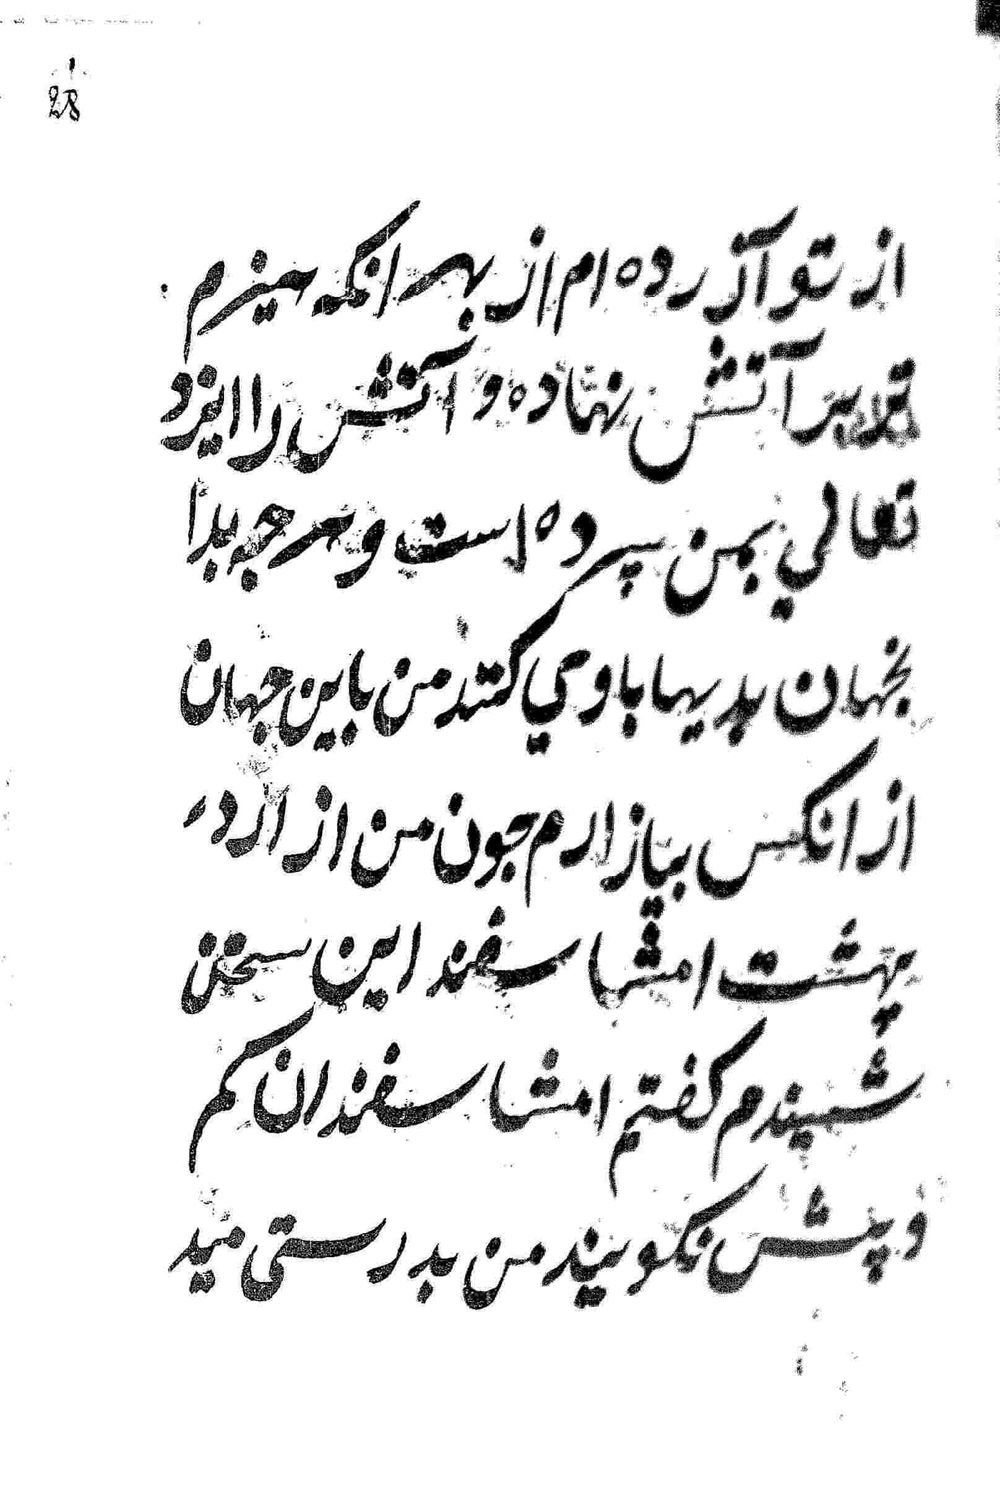 28
از تو آزرده ام از بهر انکه هیزم
تر بر آتش نهاده و آتش را ایزد
تعالي بمن سپرده است و هرجه بدا
بجهان بدیها باوي کنند من باین جهان
از انکس بیازارم جون من از ارد
بهشت امشاسفند این سخن
شنیدم کفتم امشاسفندان کم
و پیش نکویند من بدرستی مید